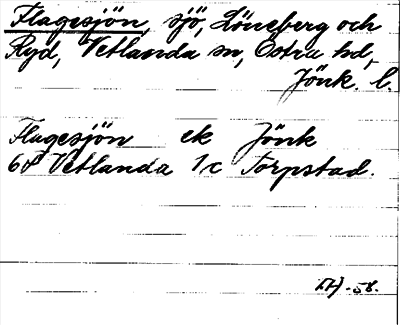 Flagesjön, sjö, Löneberg och
Ryd, Vetlanda sn, Östra hd,
Jönk. l.
Flagesjön ek Jönk
68 Vetlanda 1c Torpstad.
-58.